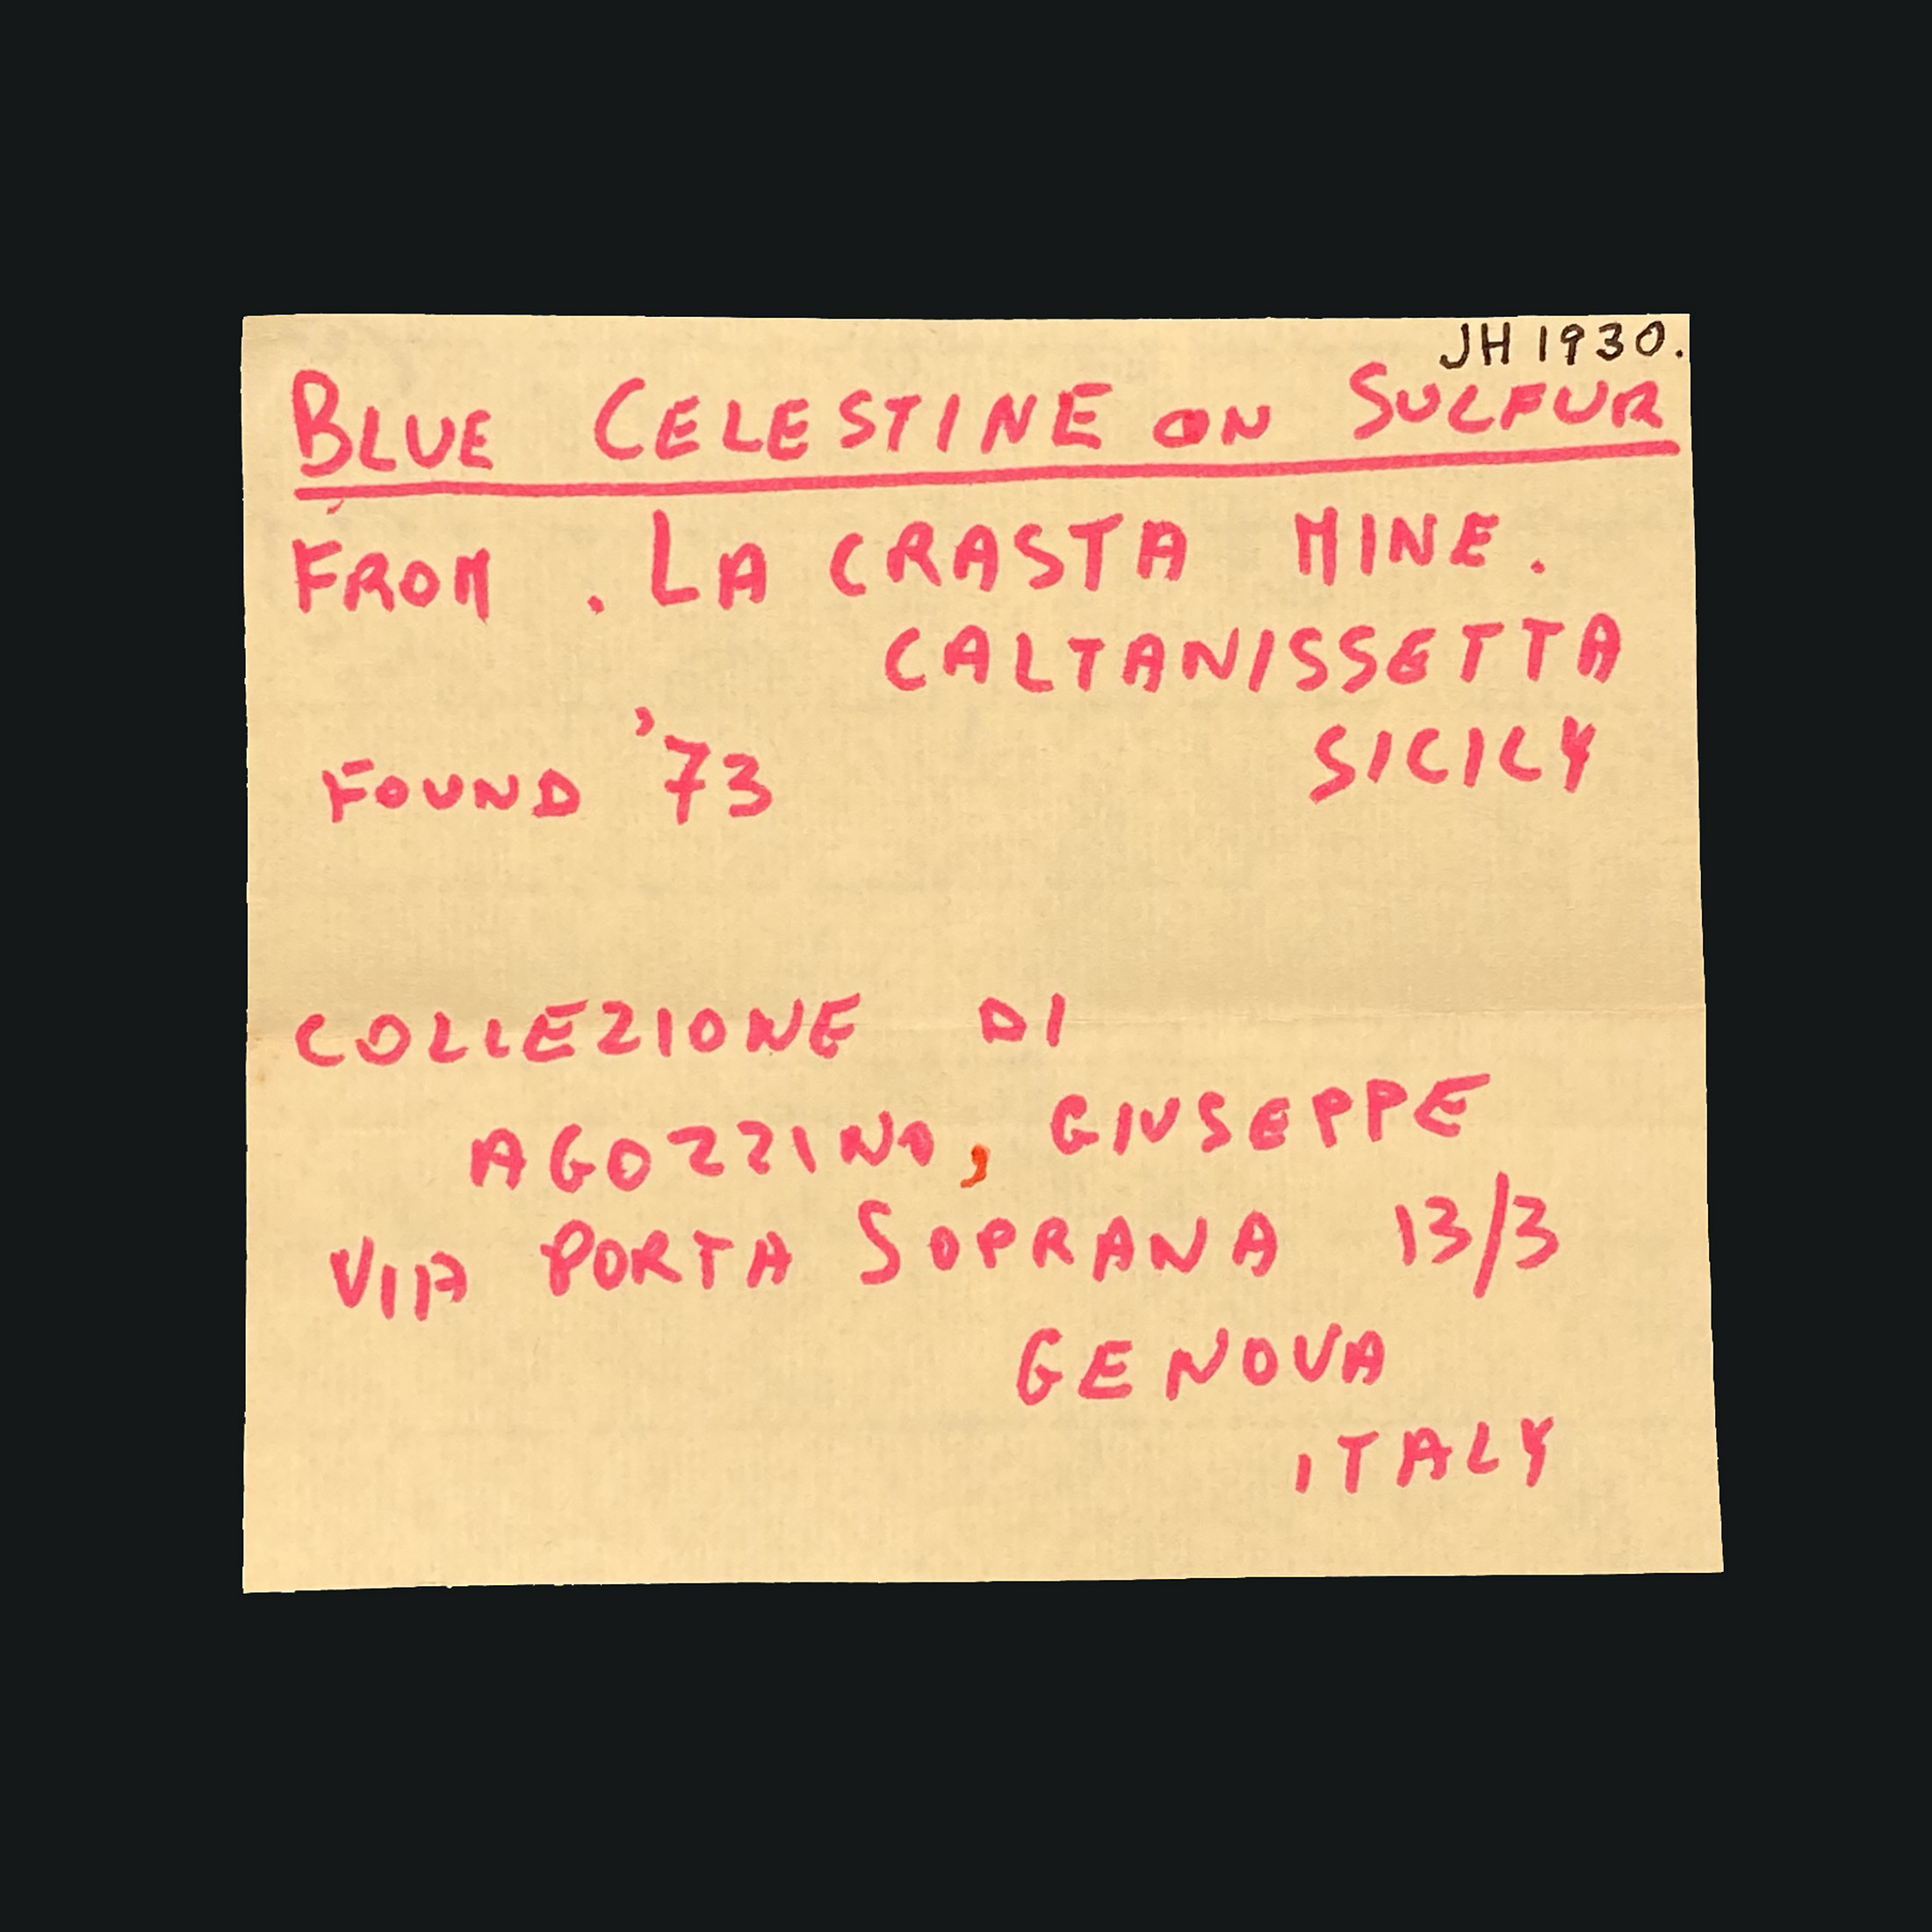 JH 1930.
BLUE CELESTINE ON SULFUR
FROM . LA CRASTA MINE.
CALTANISSETTA
SICILY
FOUND '73
COLLEZIONE DI
AGOZZINO, GIUSEPPE
VIA PORTA SOPRANA 13/3
GENOVA
ITALY